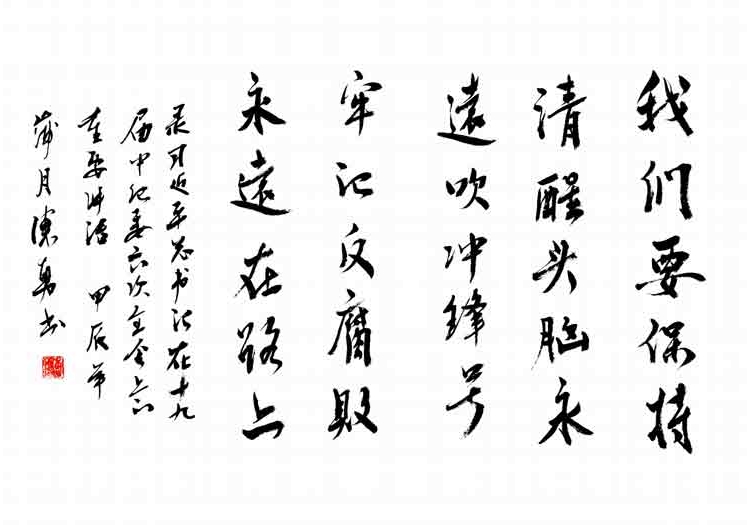 我们要保持
清醒头脑永
遠吹冲锋号
牢记反腐败
永遠在路上
录习近平总书记在十九
届中纪委六次全会上的
重要讲话 甲辰年
蒲月陳勇书